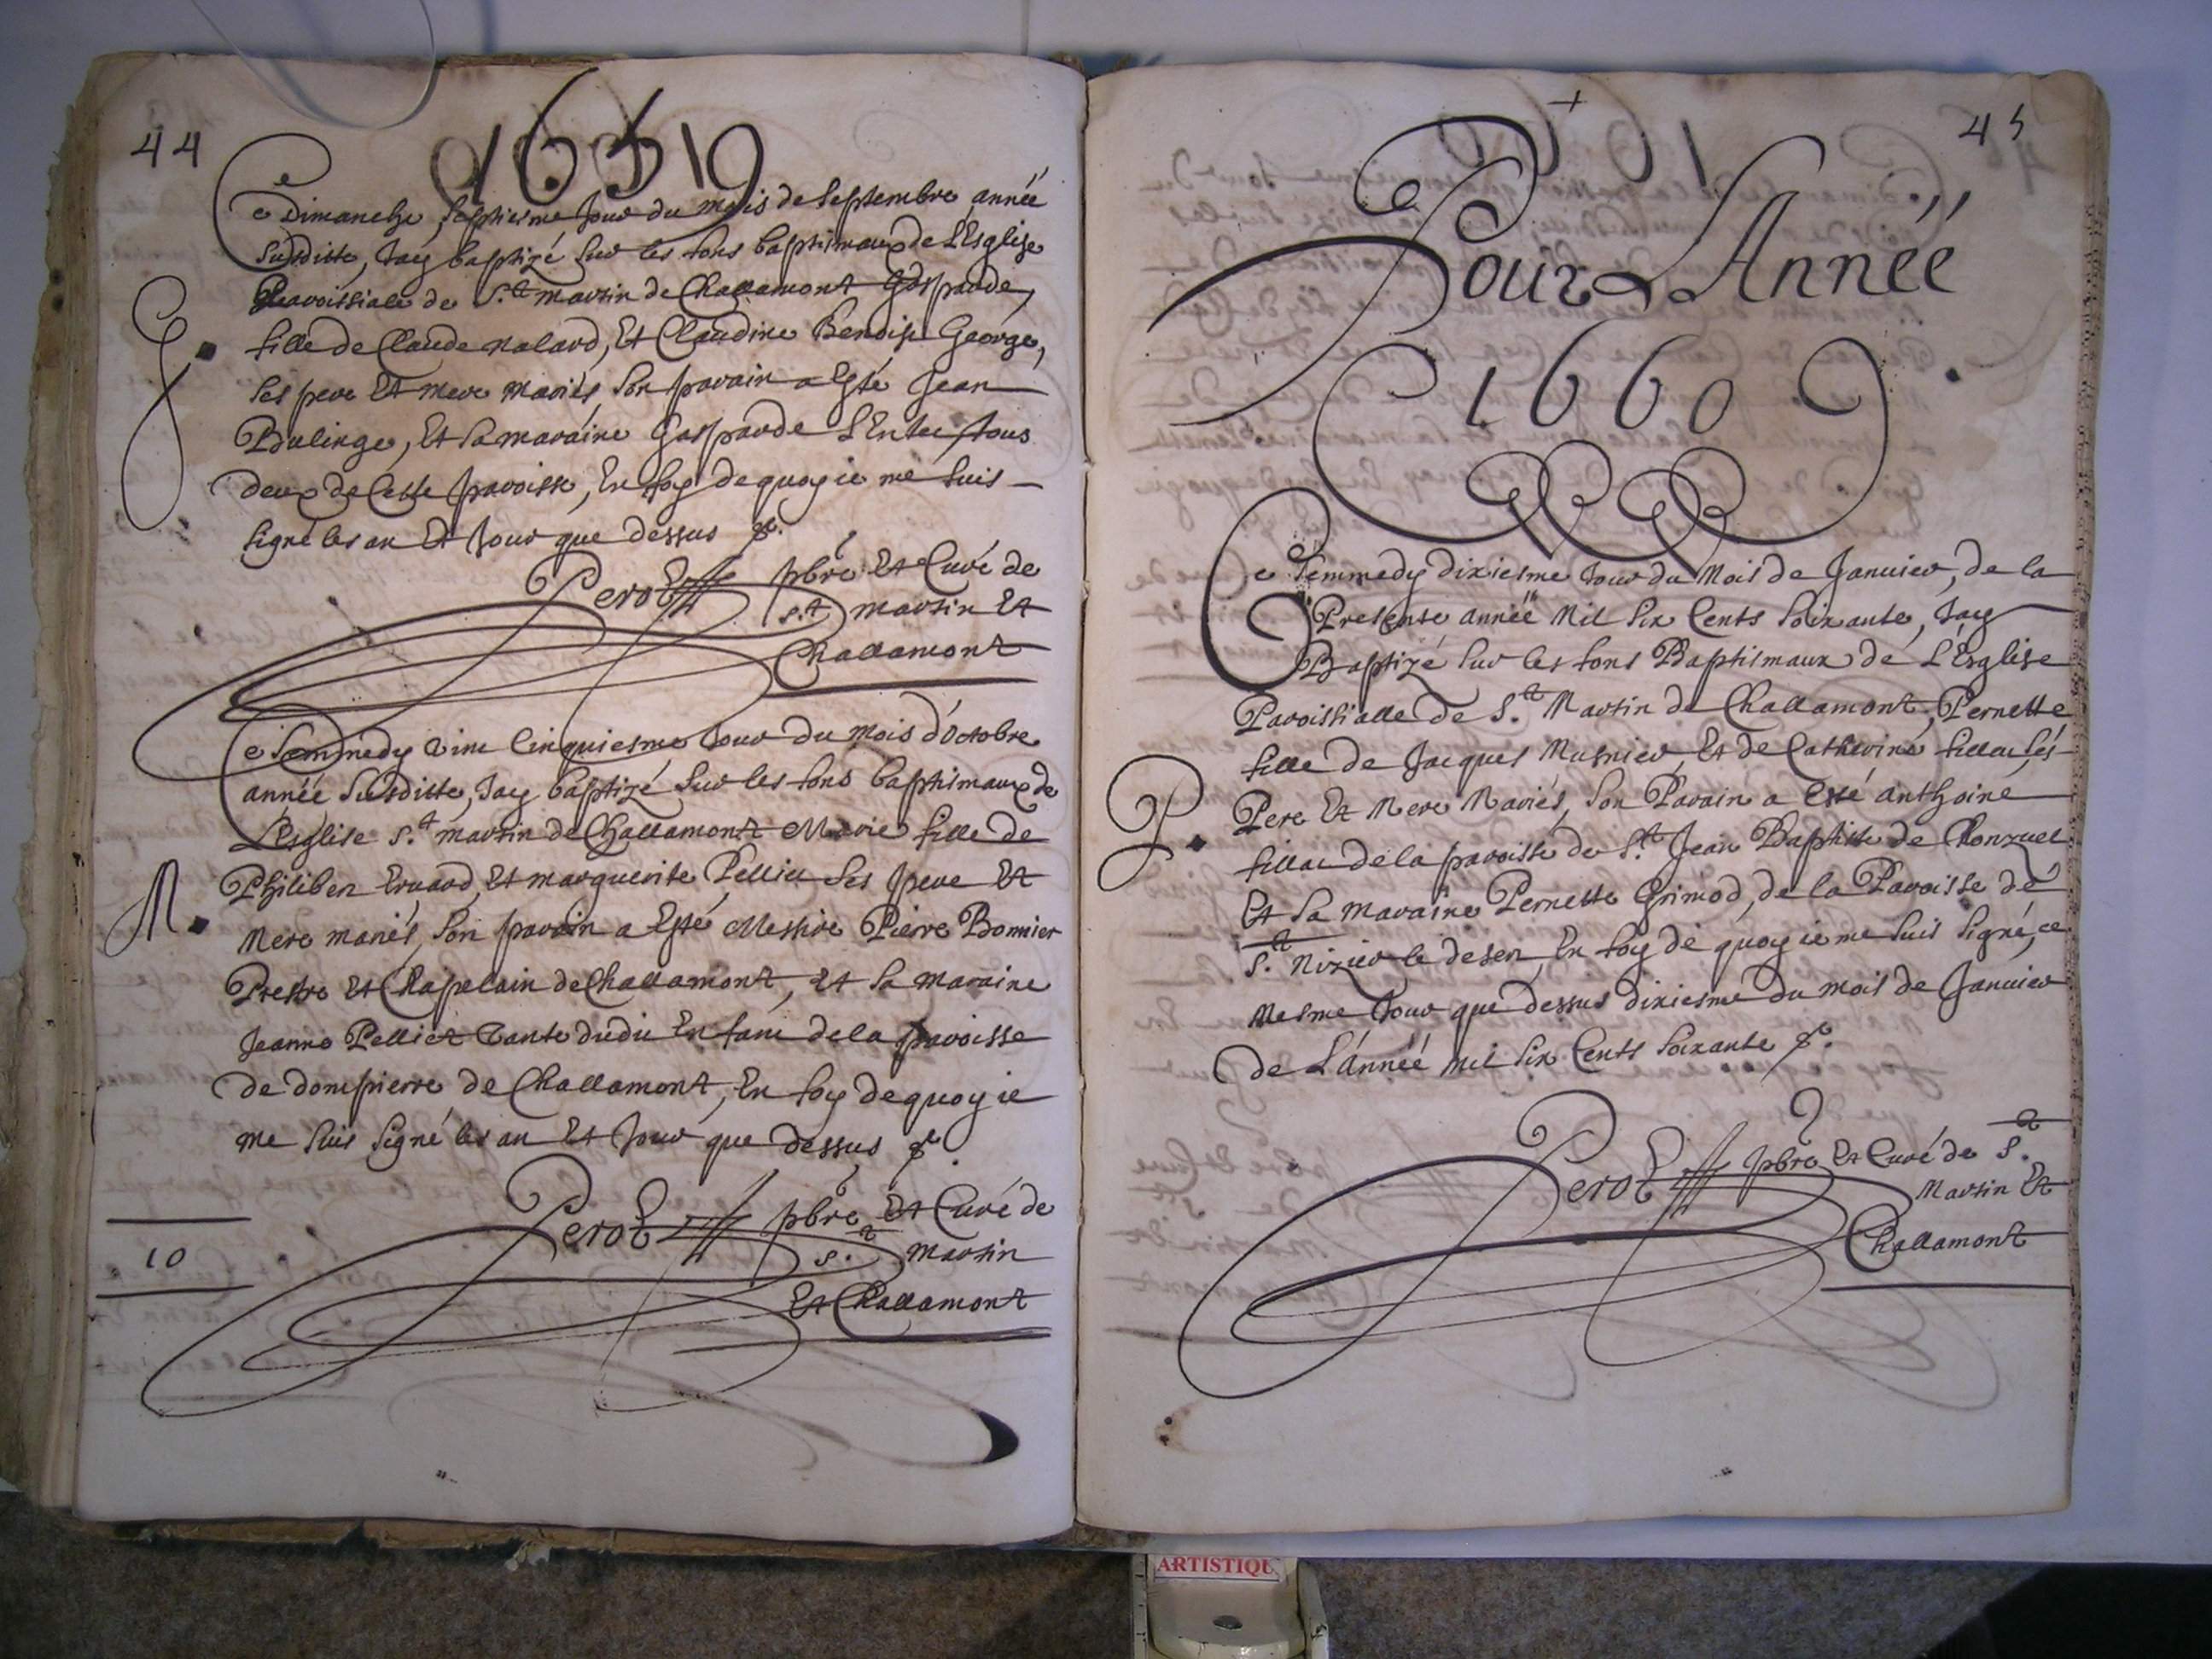 44
1659
Ce Dimanche, septiesme Jour du mois de septembre, année
susditte, Jay baptizé sur les fons baptismaux de L'Esglise
Paroissiale de S.t martin de Challamont Gasparde,
fille de Claude Nalard, Et Claudine Benoist George,
ses pere Et mere mariés, son parain a esté Jean
Bulinge, Et sa maraine Gasparde
deux de Cette paroisse, En foy de quoy ie me suis
signé les an Et Jour que dessus
G.
Perot pbre Et Curé de
S.t martin Et
Challamont
Ce Semmedy vint Cinquiesme Jour du mois d'octobre
année susditte, Jay baptizé sur les fons baptismaux de
L'Esglise S.t martin de Challamont Marie fille de
Philiben Eruard, Et marguerite Pelliet ses pere Et
mere mariés, son parain a esté Messire Pierre Bonnier
Prestre Et Chapelain de Challamont, Et sa maraine
Jeanne Pelliet Tante dudit Enfant de la paroisse
de dompierre de Challamont, En foy de quoy ie
me suis signé les an Et Jour que dessus
M.
Perot pbre Et Curé de
S.t martin
Et Challamont
10
45
Pour L'Année
1660
Ce Semmedy dixiesme Jour du Mois de Januier, de la
Presente année Mil six Cents soixante, Jay
Baptizé sur les fons Baptismaux de L'Esglise
Paroissialle de S.t Martin de Challamont, Pernette
fille de Jacques Musnier, Et de Catherine fillac, ses
Pere Et Mere Mariés, son Parain a Esté anthoine
fillac de la paroisse de S.t Jean Baptiste de Ronzuel
Et sa maraine Pernette Grimod, de la Paroisse de
S.t Nizier le desert, En foy de quoy ie me suis signé, ce
mesme Jour que dessus dixiesme du mois de Januier
de L'année mil six Cents soixante
P.
Perot pbre Et Curé de S.t
Martin Et
Challamont
ARTISTIQU